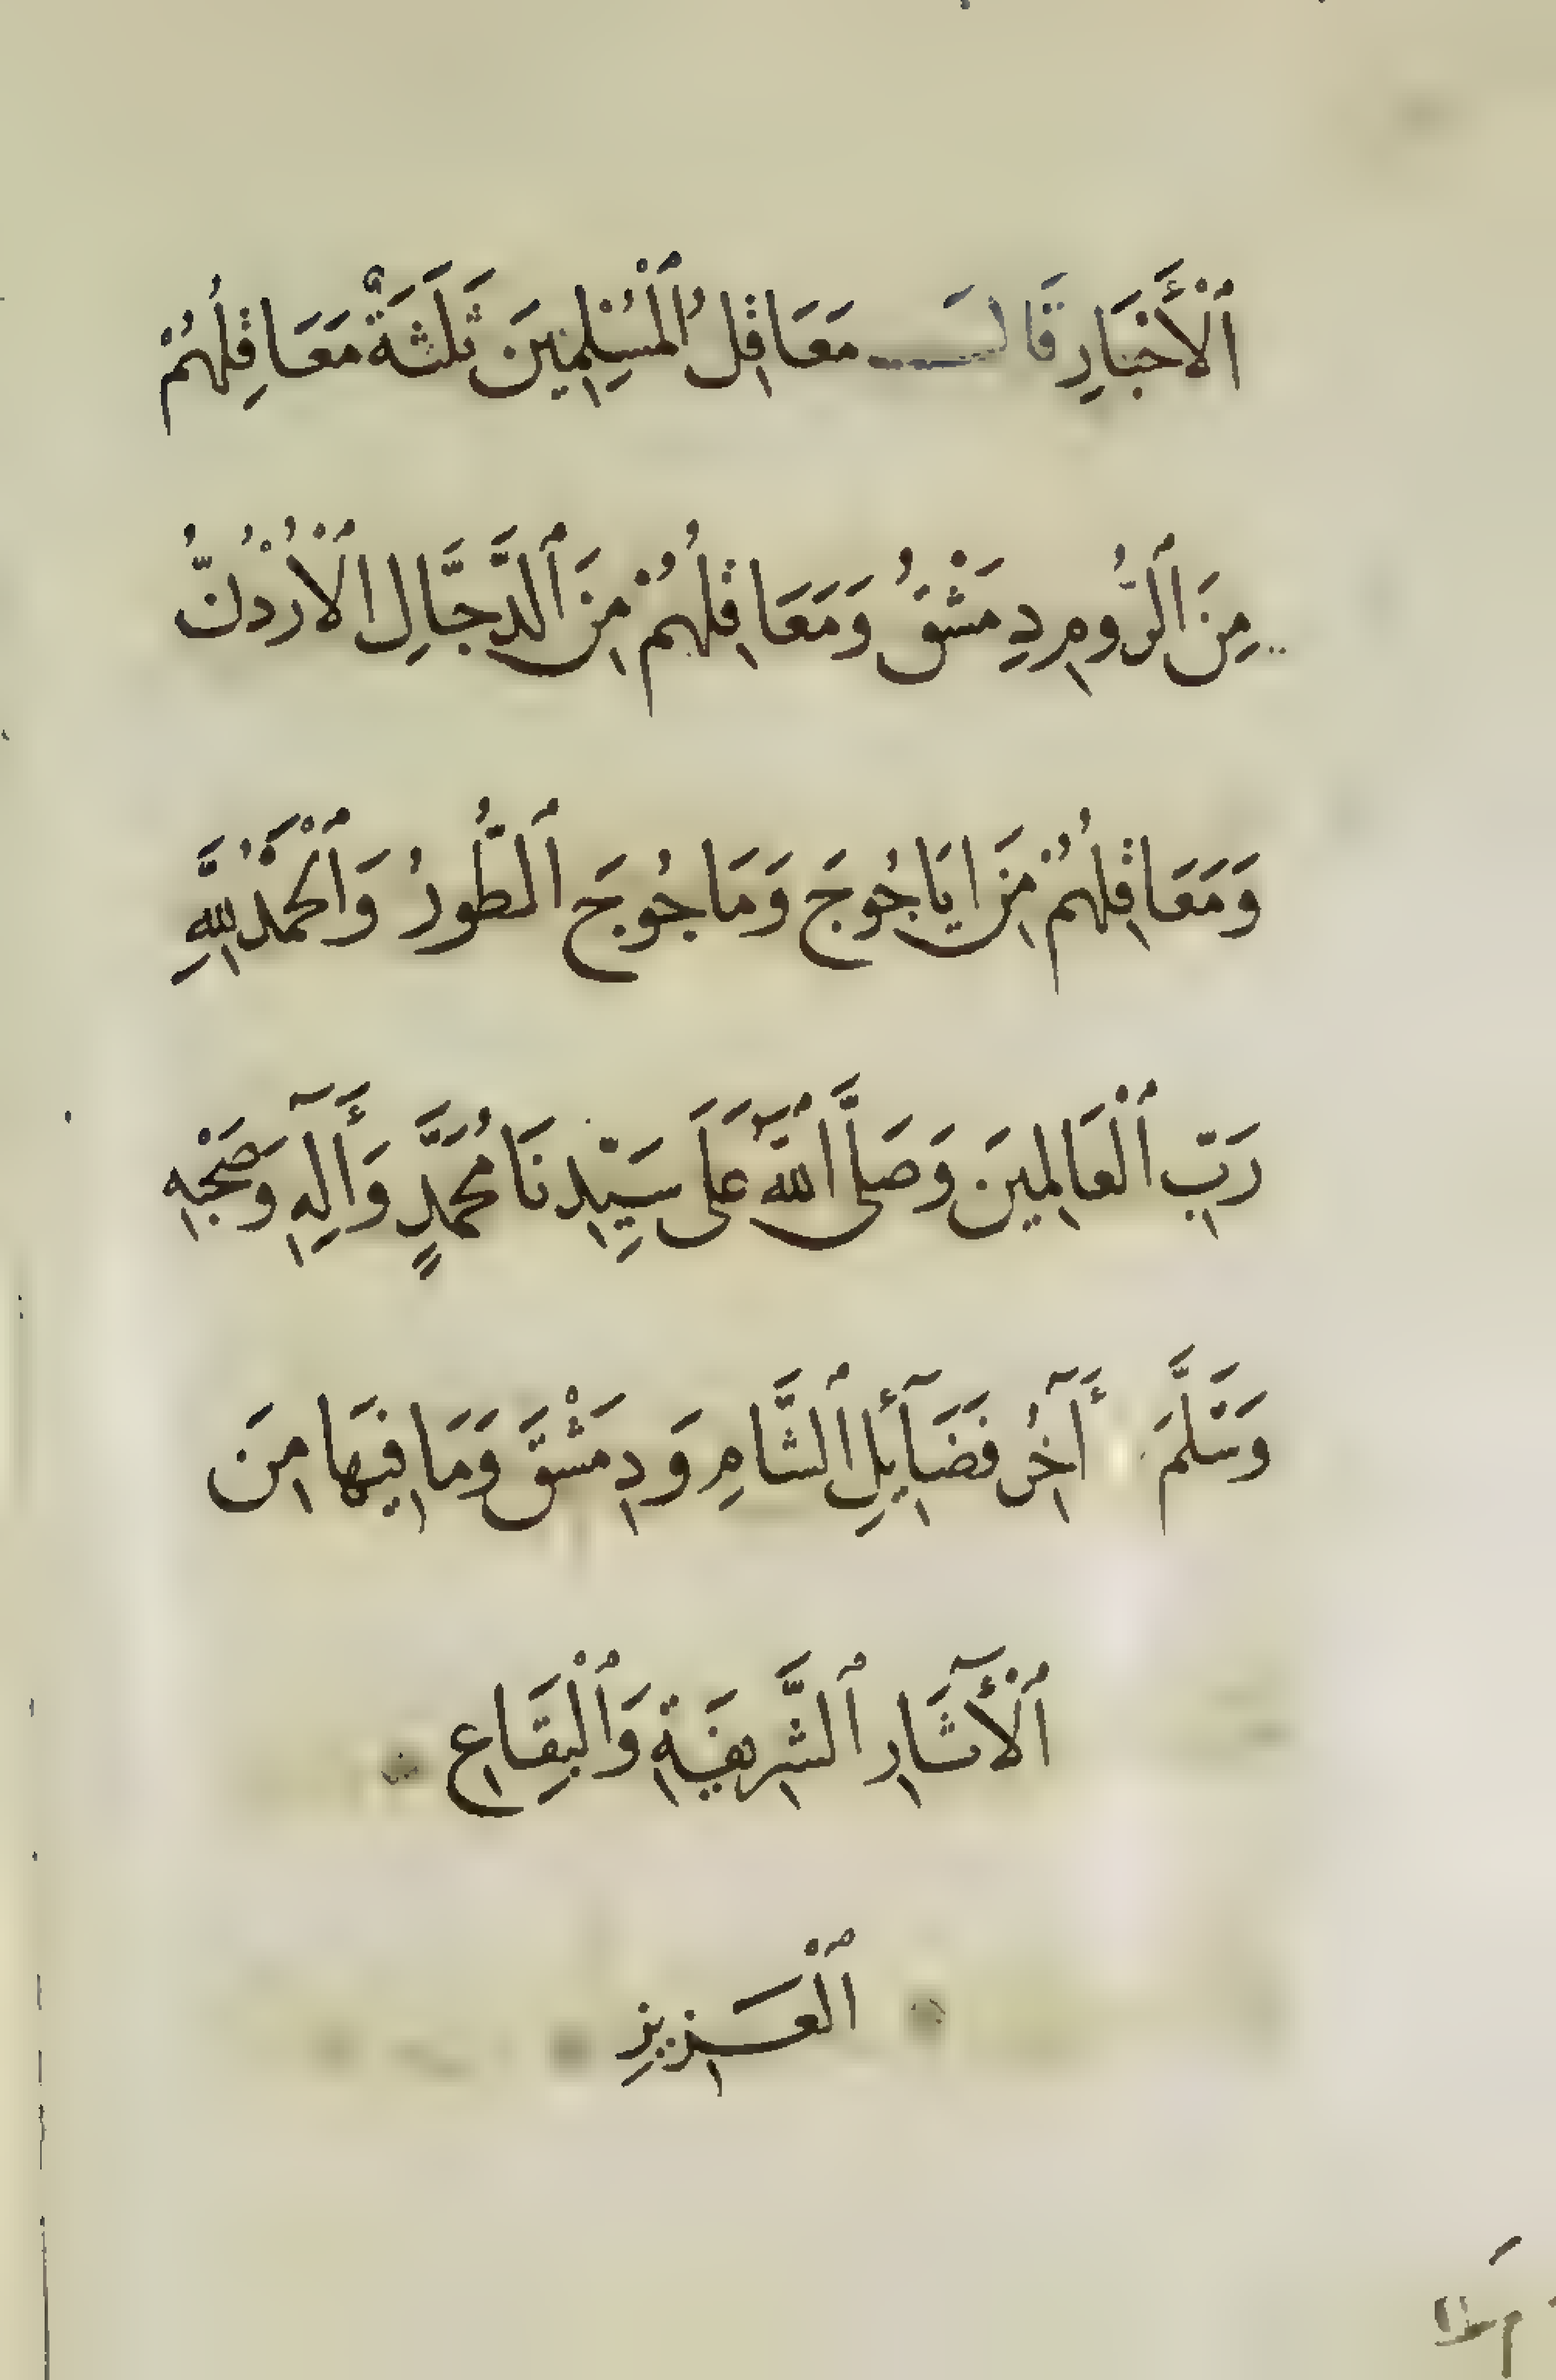 ٱلْأَخْبَارِ قَالَ مَعَاقِلُ ٱلْمُسْلِمِينَ ثَلَثَةٌ مَعَاقِلُهُمْ
مِنَ ٱلرُّومِ دِمَشْقُ وَمَعَاقِلُهُمْ مِنَ ٱلدَّجَّالِ ٱلْأُرْدُنُّ
وَمَعَاقِلُهُمْ مِنَ يَاجُوجَ وَمَاجُوجَ ٱلطُّورُ وَٱلْحَمْدُ لِلَّهِ
رَبِّ ٱلْعَالَمِينَ وَصَلَّى ٱللَّهُ عَلَى سَيِّدِنَا مُحَمَّدٍ وَأَآلِهِ وَصَحْبِهِ
وَسَلَّمَ أَآخِرُ فَضَآئِلِ ٱلشَّامِ وَدِمَشْقَ وَمَا فِيهَا مِنَ
ٱلْأَآثَارِ ٱلشَّرِيفَةِ وَٱلْبِقَاعِ
ٱلْعَزِيزِ